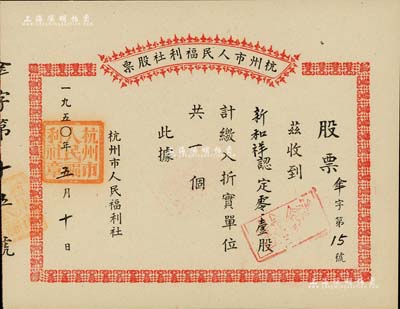 杭州市人民福利社股票
股票
傘字第15號
茲收到
新和祥認定零壹股
計繳入折實單位
共一個
此據
杭州市人民福利社
一九五〇年五月十日
杭州市
人民福
利社章
字第十五號